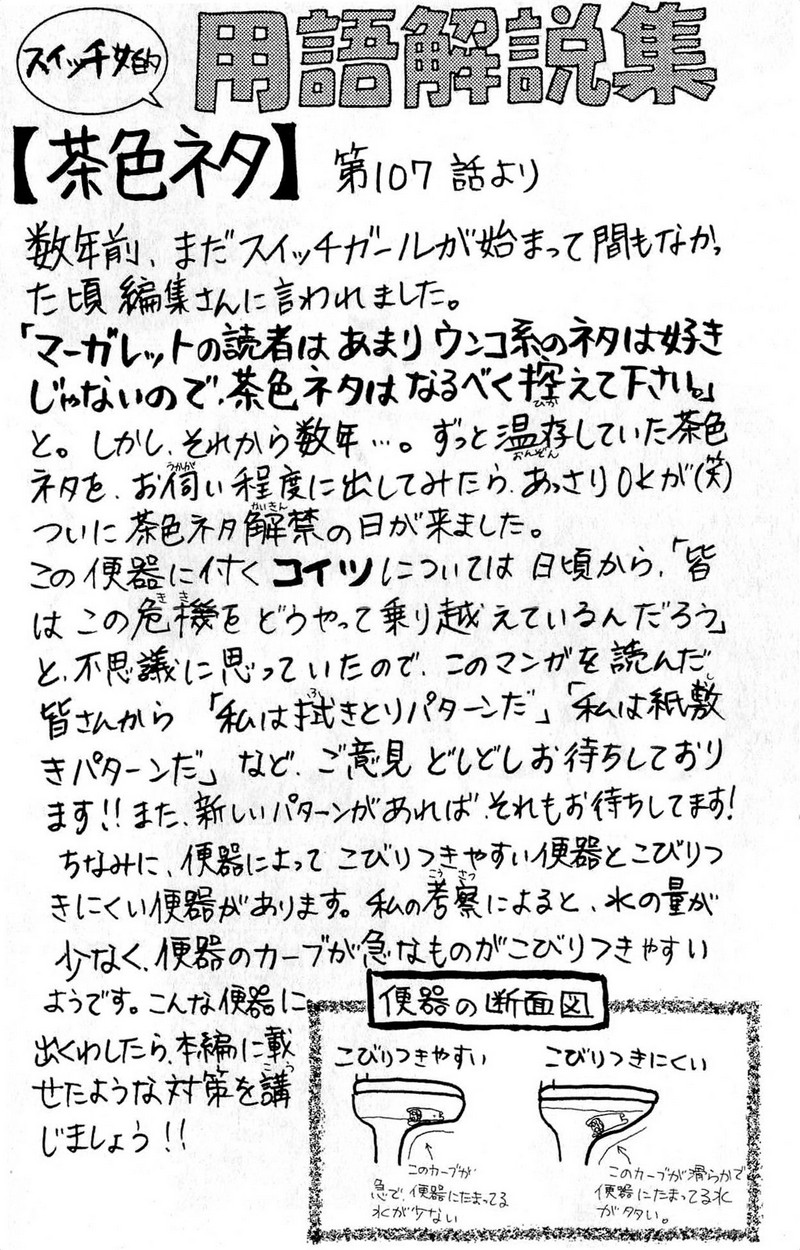 スイッチ女的
用語解説集
【茶色ネタ】 第107話より
数年前、まだスイッチガールが始まって間もなかっ
た頃 編集さんに言われました。
「マーガレットの読者はあまりウンコ系のネタは好き
じゃないので、茶色ネタはなるべく控えて下さい。」
と。しかし、それから数年…。ずっと温存していた茶色
ネタを、お伺い程度に出してみたら、あっさりOKが(笑)
ついに茶色ネタ解禁の日が来ました。
この便器に付くコイツについては日頃から、「皆
はこの危機をどうやって乗り越えているんだろう」
と、不思議に思っていたので、このマンガを読んだ
皆さんから「私は拭きとりパターンだ」「私は紙敷
きパターンだ」など、ご意見どしどしお待ちしており
ます!!また、新しいパターンがあれば、それもお待ちしてます!
ちなみに、便器によってこびりつきやすい便器とこびりつ
きにくい便器があります。私の考察によると、水の量が
少なく、便器のカーブが急なものがこびりつきやすい
ようです。こんな便器に
出くわしたら、本編に載
せたような対策を講
じましょう!!
便器の断面図
こびりつきやすい
このカーブが
急で、便器にたまってる
水が少ない
こびりつきにくい
このカーブが滑らかで
便器にたまってる水
が多い。